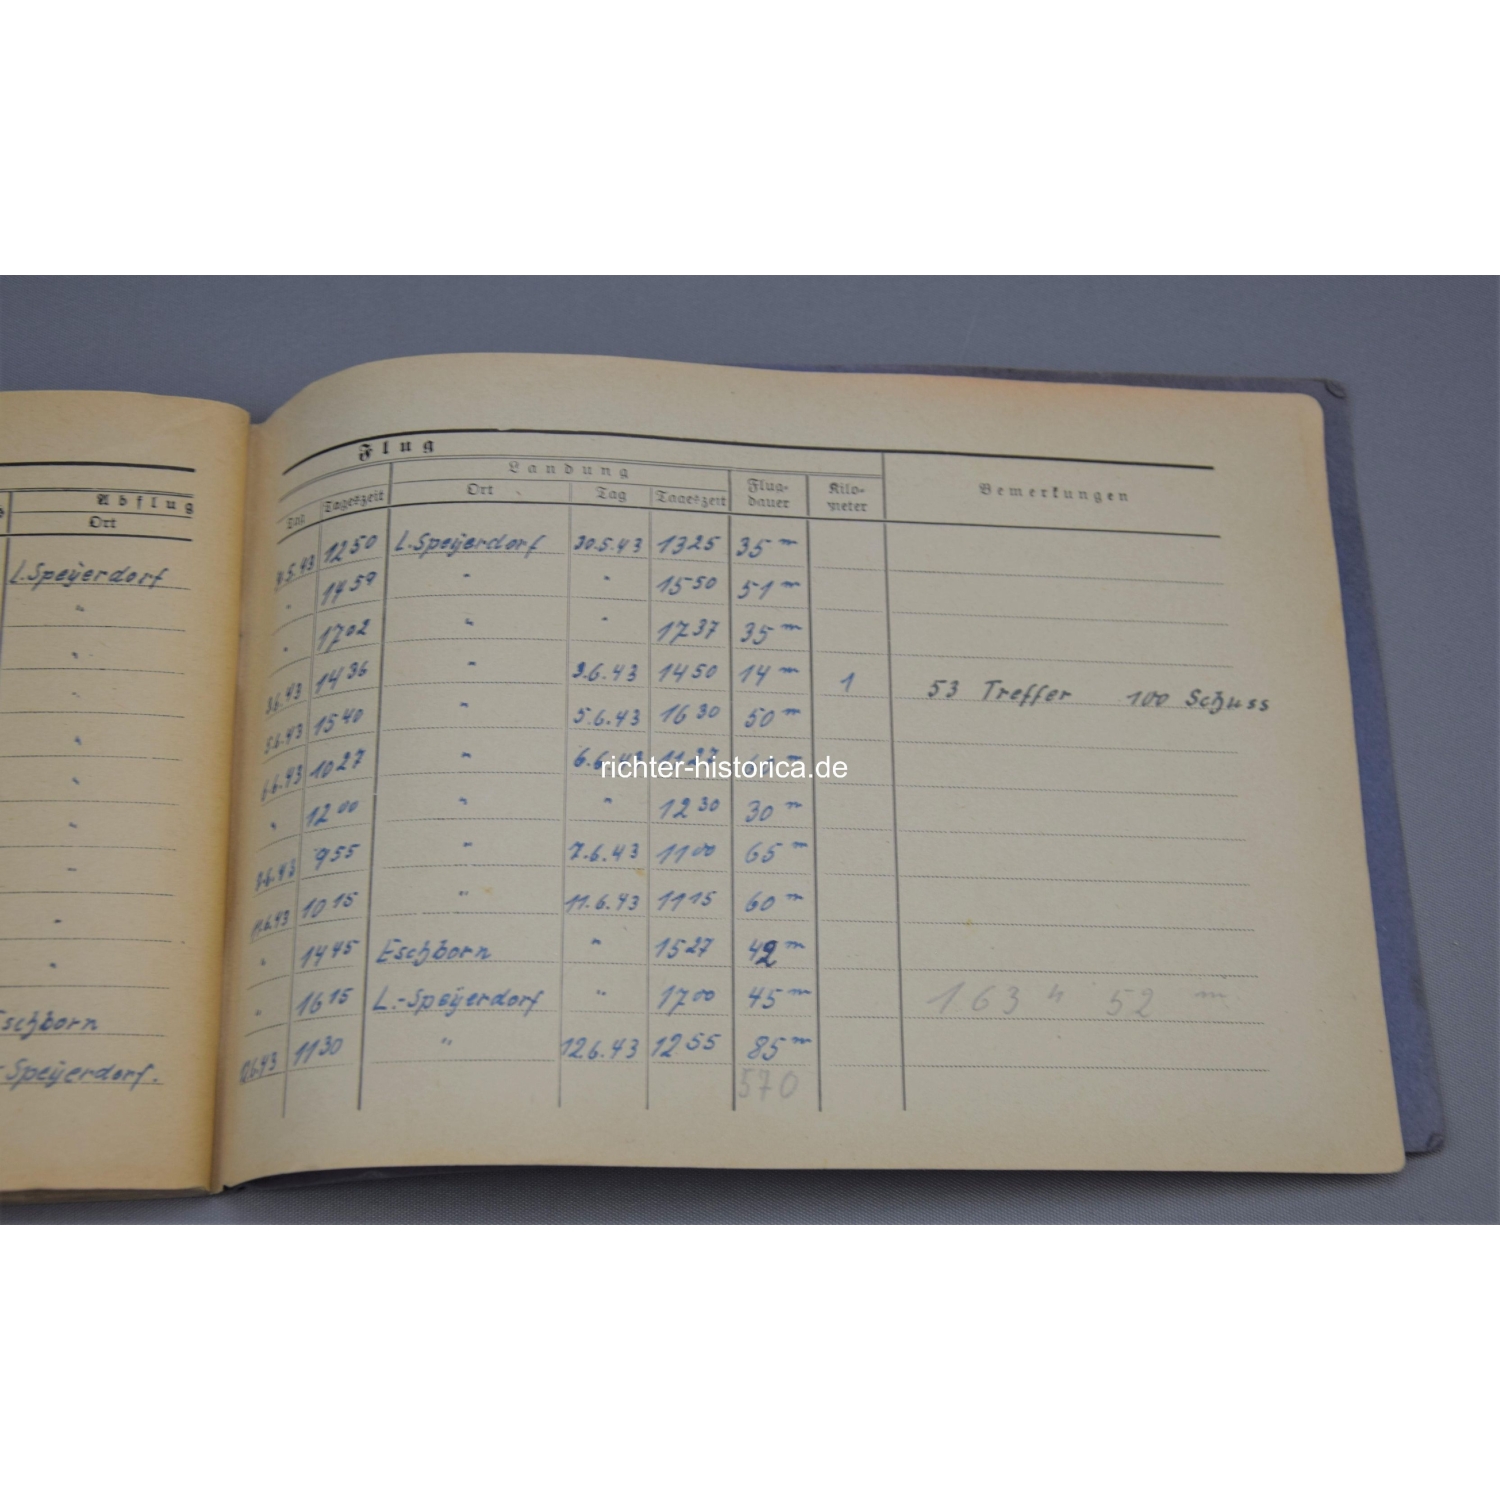 Abflug
Ort
L.Speyerdorf
"
"
"
"
"
"
"
"
"
Eschborn
-Speyerdorf.
Flug
Landung
Tag Tageszeit Ort Tag Tageszeit Flug-dauer Kilo-meter Bemerkungen
.5.43 12 50 L.Speyerdorf 30.5.43 13 25 35 m
" 14 59 " " 15 50 51 m
" 17 02 " " 17 37 35 m
3.6.43 14 36 " 3.6.43 14 50 14 m 1 53 Treffer 100 Schuss
5.6.43 15 40 " 5.6.43 16 30 50 m
6.6.43 10 27 " 6.6.43 11 27 60 m
richter-historica.de
" 12 00 " " 12 30 30 m
.6.43 9 55 " 7.6.43 11 00 65 m
11.6.43 10 15 " 11.6.43 11 15 60 m
" 14 45 Eschborn " 15 27 42 m
" 16 15 L.-Speyerdorf " 17 00 45 m 163 h 52 m
12.6.43 11 30 " 12.6.43 12 55 85 m
570